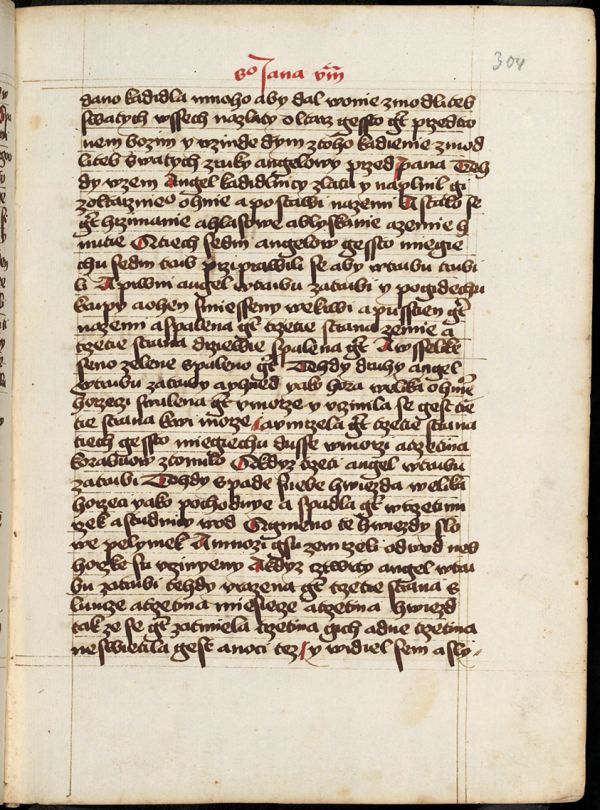 So Jana viii
304
dano kadidla mnoho aby dal wonie z modliteb
swatych wssech na zlaty oltarz gessto gt przed tro
nem bozim y wzinde dym z toho kadienie z mod
liteb swatych z ruky angelowy przed pana Teh
dy wzem Angel kadidlnicy zlatu y naplnil gi
z oltarzneo ohnie a postawi na zemi A stalo se
gt hrzimanie a hlasowe a blyskanie a zemie h
nutie O tiech sedm angelow gessto miegie
chu sedm trub prziprawili se aby w trubu trubi
li A prwni angel w trubu zatrubi y pogidechu
krupy a ohen smiesseny we krwi a pusscien gt
na zemi a spalena gt trzetie strana zemie a
trzetie strana drziewie spalena gt A wsselike
seno zelene spaleno gt Tehdy druhy angel
w trubu zatruby a yhned yako hora welika ohniem
horzeczi strulena gt v morze y vczinila se gest trze
tie strana krwi morze a vmrzela gt trzetie strana
tiech gessto miegiechu dusse w morzi a trzetina
korabuow ztonulo A kdyz trzeti angel w trubu
zatrubi Tehdy spade s nebe hwiezda welika
horzeci yako pochodnye a spadla gt w trzeti m
rzek a studnicz wod A gmeno te hwiezdy slo
we pelynek A mnozi gsu zemrzeli od wod neb
horzke su vczinyeny A kdyz cztwrty angel w tru
bu zatrubi tehdy vrazena gt trzetie strana s
luncze a trzetina miesiecze a trzetina hwiezd
tak ze se gt zatmiela trzetina gich a dne trzetina
neswietila gest a noci tez y widiel sem a sly